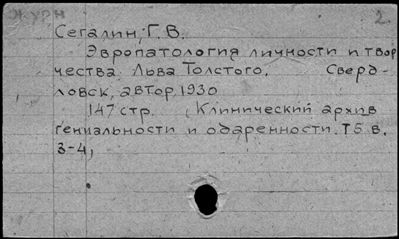 ЖУРН 2.
Сегалин, Г. В.
Эвропатология личности и твор
чества Льва Толстого. Сверд-
ловск, автор, 1930
147 стр. (Клинический архив
гениальности и одаренности. Т5 в.
3-4)